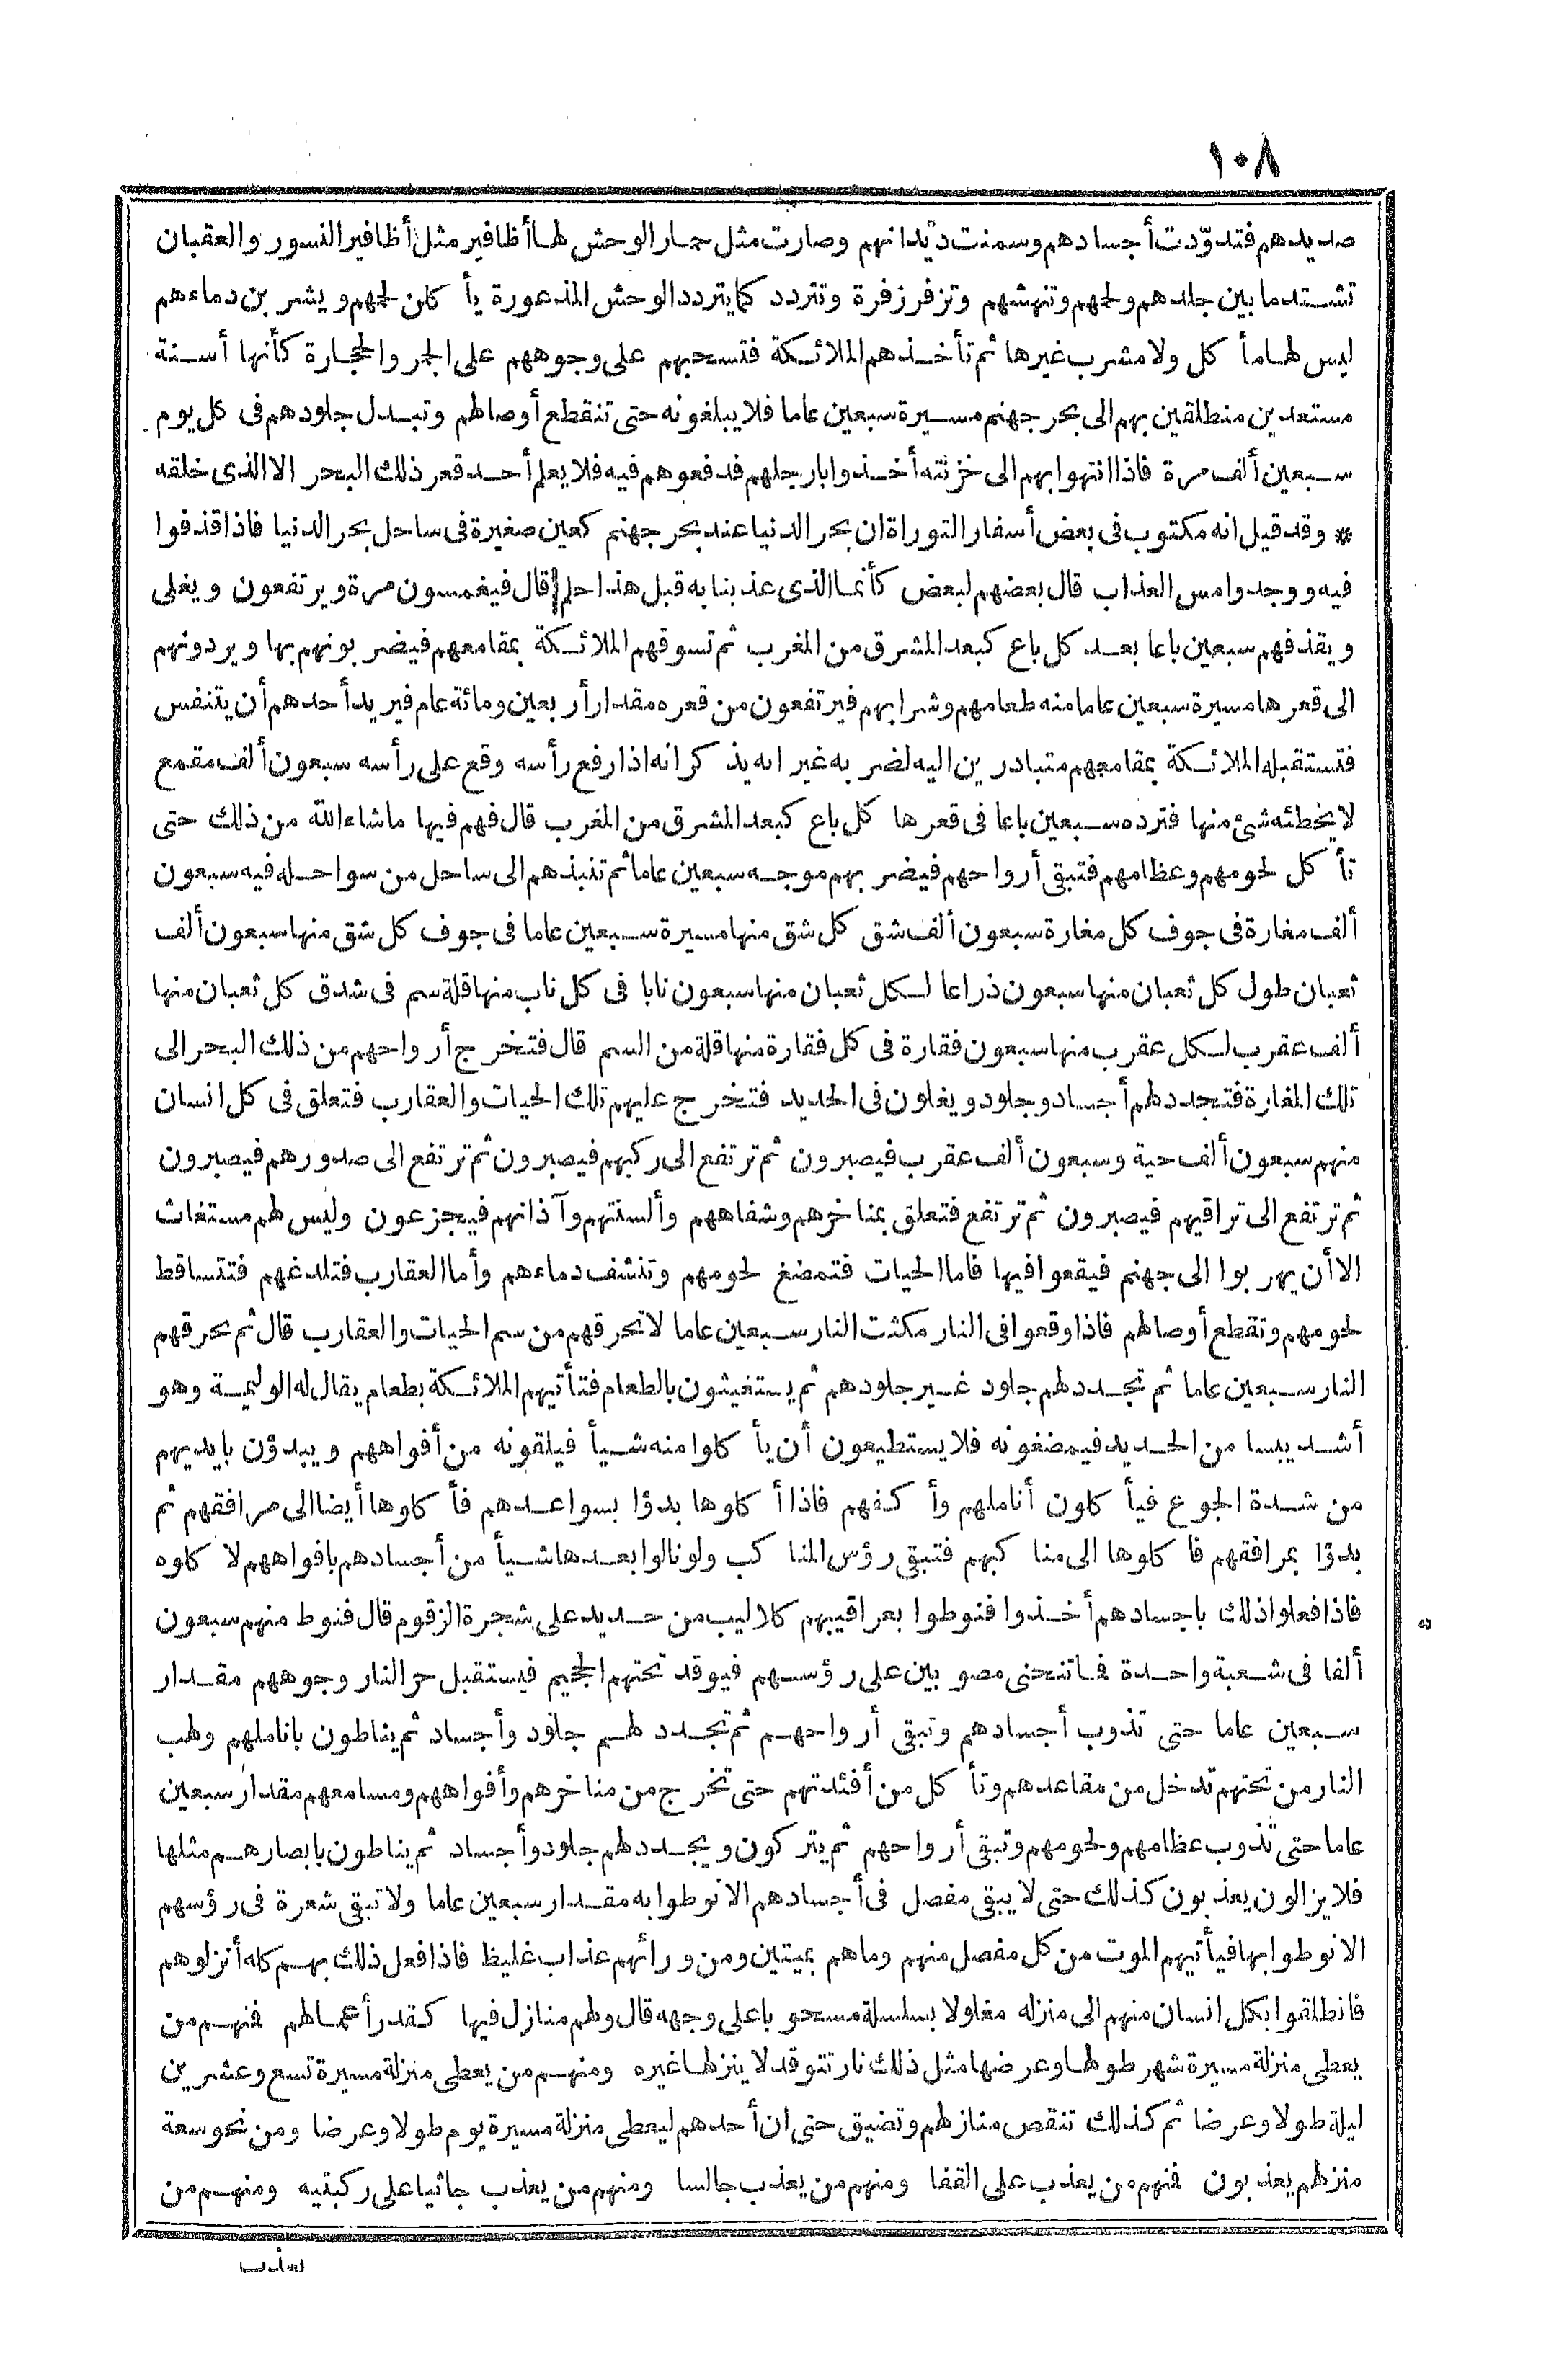 ١٠٨
صديدهم فتدوّدت أجسادهم وسمنت ديدانهم وصارت مثل حمار الوحش لها أظافير مثل أظافير النسور والعقبان
تشتد ما بين جلدهم ولحمهم وتنهشهم وتزفر زفرة وتتردد كما يتردد الوحش المذعورة يأكلن لحمهم ويشربن دماءهم
ليس لها مأكل ولا مشرب غيرها ثم تأخذهم الملائكة فتسحبهم على وجوههم على الجمر والحجارة كأنها أسنة
مستعدين منطلقين بهم الى بحر جهنم مسيرة سبعين عاما فلا يبلغونه حتى تنقطع أوصالهم وتبدل جلودهم فى كل يوم
سبعين ألف مرة فاذا انتهوا بهم الى خزنته أخذوا بارجلهم فدفعوهم فيه فلا يعلم أحد قعر ذلك البحر الا الذى خلقه
* وقد قيل انه مكتوب فى بعض أسفار التوراة ان بحر الدنيا عند بحر جهنم كعين صغيرة فى ساحل بحر الدنيا فاذا قذفوا
فيه ووجدوا مس العذاب قال بعضهم لبعض كأنما الذى عذبنا به قبل هذا حلم قال فيغمسون مرة ويرتفعون ويغلى
ويقذفهم سبعين باعا بعد كل باع كبعد المشرق من المغرب ثم تسوقهم الملائكة بمقامعهم فيضربونهم بها ويردونهم
الى قعرها مسيرة سبعين عاما منه طعامهم وشرابهم فيرتفعون من قعره مقدار أربعين ومائة عام فيريد أحدهم أن يتنفس
فتستقبله الملائكة بمقامعهم متبادرين اليه لضربه غير انه يذكر انه اذا رفع رأسه وقع على رأسه سبعون ألف مقمع
لا يخطئه شئ منها فترده سبعين باعا فى قعرها كل باع كبعد المشرق من المغرب قال فهم فيها ما شاء الله من ذلك حتى
تأكل لحومهم وعظامهم فتبقى أرواحهم فيضربهم موجه سبعين عاما ثم تنبذهم الى ساحل من سواحله فيه سبعون
ألف مغارة فى جوف كل مغارة سبعون ألف شق كل شق منها مسيرة سبعين عاما فى جوف كل شق منها سبعون ألف
ثعبان طول كل ثعبان منها سبعون ذراعا لكل ثعبان منها سبعون نابا فى كل ناب منها قلة سم فى شدق كل ثعبان منها
ألف عقرب لكل عقرب منها سبعون فقارة فى كل فقارة منها قلة من السم قال فتخرج أرواحهم من ذلك البحر الى
تلك المغارة فتجدد لهم أجساد وجلود ويغلون فى الحديد فتخرج عليهم تلك الحيات والعقارب فتعلق فى كل انسان
منهم سبعون ألف حية وسبعون ألف عقرب فيصبرون ثم ترتفع الى ركبهم فيصبرون ثم ترتفع الى صدورهم فيصبرون
ثم ترتفع الى تراقيهم فيصبرون ثم ترتفع فتعلق بمناخرهم وشفاههم وألسنتهم وآذانهم فيجزعون وليس لهم مستغاث
الا أن يهربوا الى جهنم فيقعوا فيها فاما الحيات فتمضغ لحومهم وتنشف دماءهم وأما العقارب فتلدغهم فتتساقط
لحومهم وتقطع أوصالهم فاذا وقعوا فى النار مكثت النار سبعين عاما لا تحرقهم من سم الحيات والعقارب قال ثم تحرقهم
النار سبعين عاما ثم تجدد لهم جلود غير جلودهم ثم يستغيثون بالطعام فتأتيهم الملائكة بطعام يقال له الوليمة وهو
أشد يبسا من الحديد فيمضغونه فلا يستطيعون أن يأكلوا منه شيأ فيلقونه من أفواههم ويبدؤن بايديهم
من شدة الجوع فيأكلون أناملهم وأكفهم فاذا أكلوها بدؤا بسواعدهم فأكلوها أيضا الى مرافقهم ثم
بدؤا بمرافقهم فاكلوها الى مناكبهم فتبقى رؤس المناكب ولو نالوا بعدها شيأ من أجسادهم بافواههم لاكلوه
فاذا فعلوا ذلك باجسادهم أخذوا فنوطوا بعراقيبهم كلاليب من حديد على شجرة الزقوم قال فنوط منهم سبعون
ألفا فى شعبة واحدة فما تنحنى مصوبين على رؤسهم فيوقد تحتهم الجحيم فيستقبل حر النار وجوههم مقدار
سبعين عاما حتى تذوب أجسادهم وتبقى أرواحهم ثم تجدد لهم جلود وأجساد ثم يناطون باناملهم ولهب
النار من تحتهم تدخل من مقاعدهم وتأكل من أفئدتهم حتى تخرج من مناخرهم وأفواههم ومسامعهم مقدار سبعين
عاما حتى تذوب عظامهم ولحومهم وتبقى أرواحهم ثم يتركون ويجدد لهم جلود وأجساد ثم يناطون بابصارهم مثلها
فلا يزالون يعذبون كذلك حتى لا يبقى مفصل فى أجسادهم الا نوطوا به مقدار سبعين عاما ولا تبقى شعرة فى رؤسهم
الا نوطوا بها فيأتيهم الموت من كل مفصل منهم وما هم بميتين ومن ورائهم عذاب غليظ فاذا فعل ذلك بهم كله أنزلوهم
فانطلقوا بكل انسان منهم الى منزله مغلولا بسلسلة مسحوبا على وجهه قال ولهم منازل فيها كقدر أعمالهم فمنهم من
يعطى منزلة مسيرة شهر طولها وعرضها مثل ذلك نار تتوقد لا ينزلها غيره ومنهم من يعطى منزلة مسيرة تسع وعشرين
ليلة طولا وعرضا ثم كذلك تنقص منازلهم وتضيق حتى ان أحدهم ليعطى منزلة مسيرة يوم طولا وعرضا ومن نحو سعة
منزلهم يعذبون فمنهم من يعذب على القفا ومنهم من يعذب جالسا ومنهم من يعذب جاثيا على ركبتيه ومنهم من
يعذب